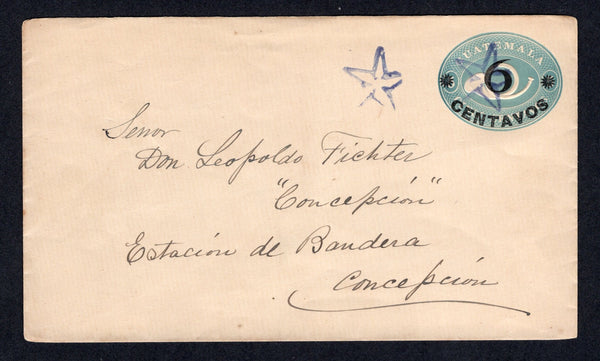 GUATEMALA
6
CENTAVOS
Señor
Don Leopoldo Fichter
"Concepción"
Estación de Bandera
Concepción